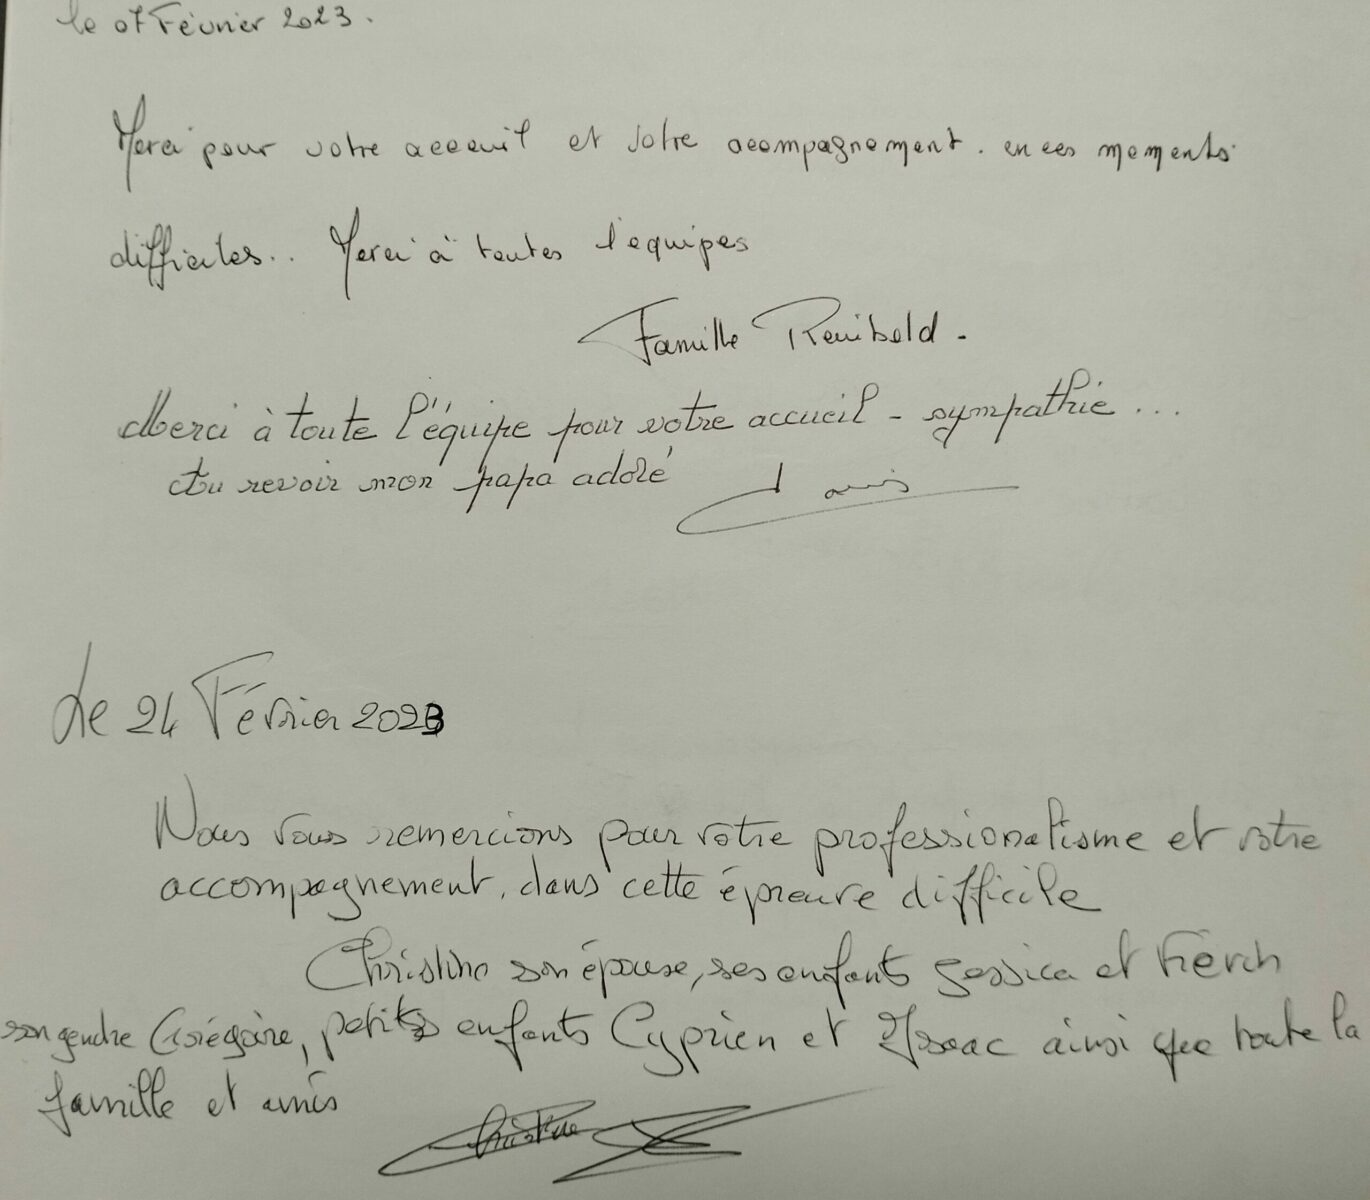 le 07 Février 2023.
Merci pour votre acceuil et votre acompagnement. en ces moments
difficiles.. Merci à toutes l'equipes
Famille
Merci à toute l'équipe pour votre accueil - sympathie...
Au revoir mon papa adoré
Le 24 Février 2023
Nous vous remercions pour votre professionalisme et votre
accompagnement, dans cette épreuve difficile
Christine son épouse, ses enfants Jessica et
son gendre Grégoire, petits enfants Cyprien et Yssac ainsi que toute la
famille et amis
Christine